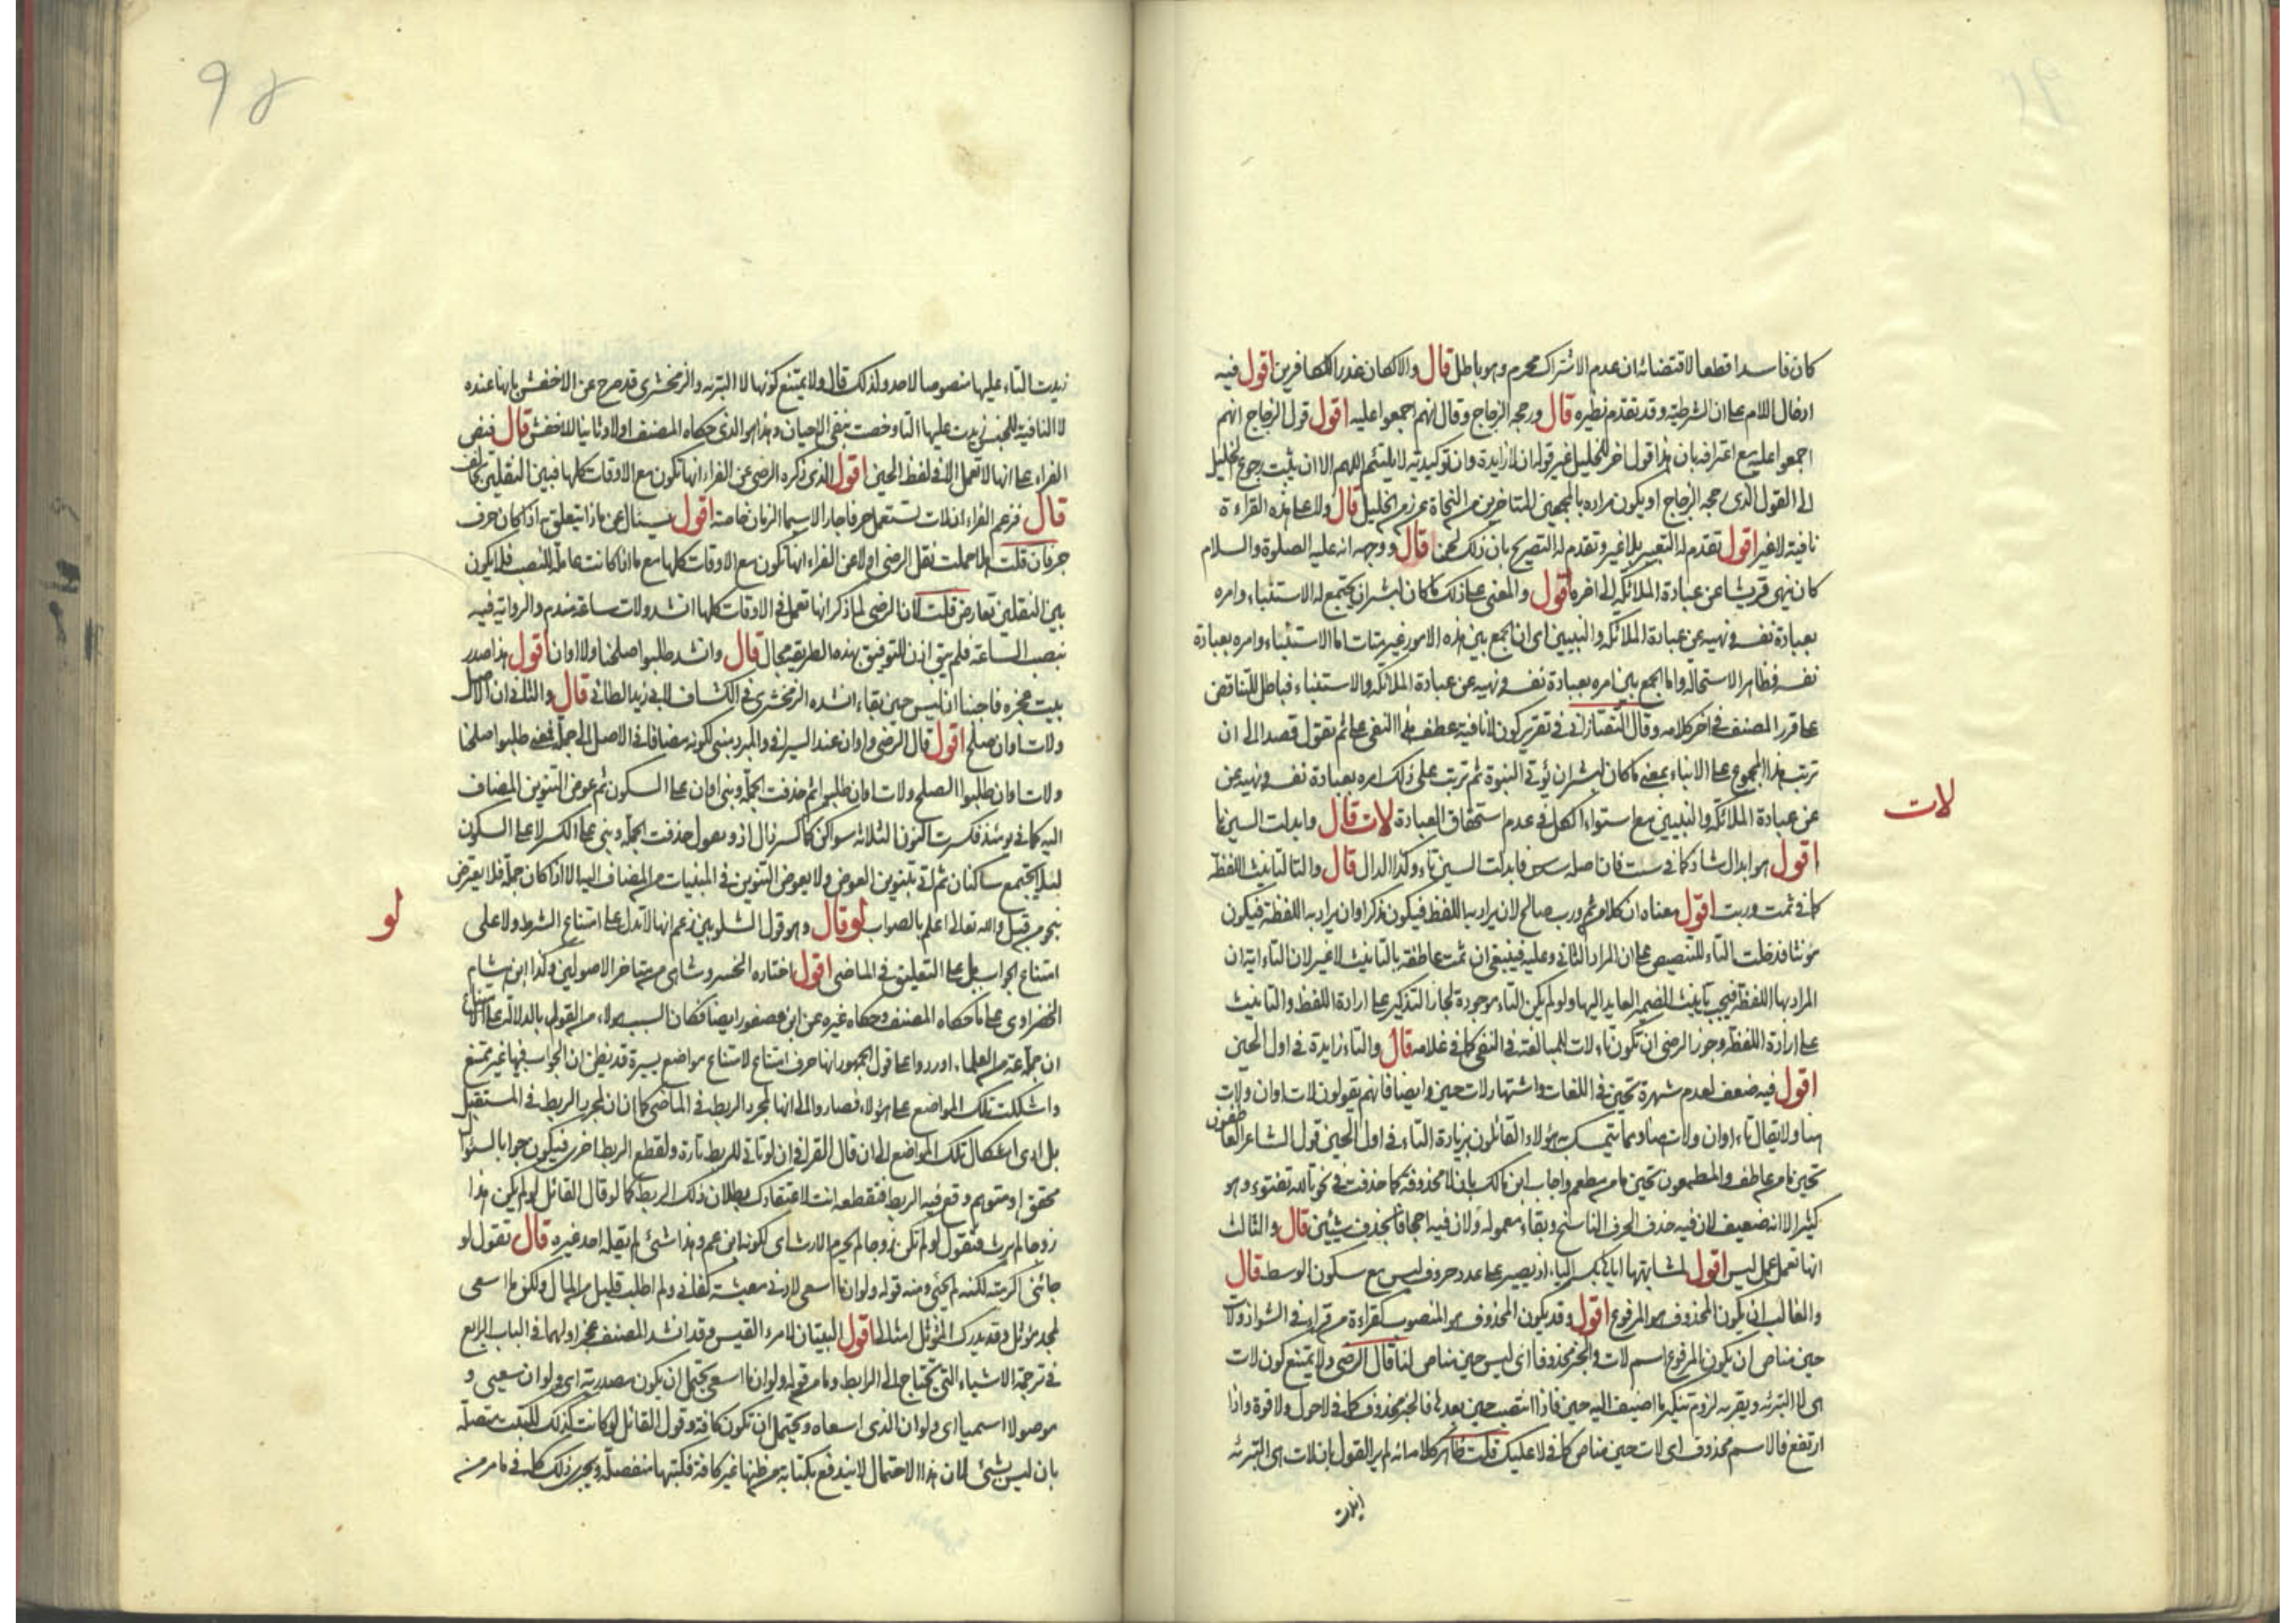 كان فاسدا قطعا لاقتضائه ان عدم الاشتراك محرم وهو باطل قال والا كان عذرا للكافرين اقول فيه
ادخال اللام على ان الشرطية وقد تقدم نظيره قال ورجحه الزجاج وقال انهم اجمعوا عليه اقول قول الزجاج انهم
اجمعوا عليه مع اعترافه بان هذا قول اخر للخليل غير قوله ان لا زايدة وان توكيدية لا يلتئم اللهم الا ان يثبت رجوع الخليل
الى القول الذى رجحه الزجاج او يكون مراده بالمجمعين المتاخرين من النحاة عن زمن الخليل قال ولا على هذه القراءة
نافية لا غير اقول تقدم له التعبير بلا غير وتقدم له التصريح بان ذلك لحن قال ووجهه انه عليه الصلوة والسلام
كان ينهى قريشا عن عبادة الملائكة الى اخره اقول والمعنى على ذلك ما كان لبشر ان يجتمع له الاستنباء وامره
بعبادة نفسه ونهيه عن عبادة الملائكة والنبيين اى ان الجمع بين هذه الامور غير متات اما الاستنباء وامره بعبادة
نفسه فظاهر الاستحالة واما الجمع بين امره بعبادة نفسه ونهيه عن عبادة الملائكة والاستنباء فباطل للتناقض
على قرر المصنف فى اخر كلامه وقال التفتازانى فى تقرير كون لا نافية عطف هذا النفى على ثم تقول قصدا الى ان
ترتب هذا المجموع على الانباء بمعنى ما كان لبشر ان يؤتى النبوة ثم ترتب على ذلك امره بعبادة نفسه ونهيه عن
عن عبادة الملائكة والنبيين مع استواء الكل فى عدم استحقاق العبادة لات قال وابدلت السين تا
لات
اقول هو ابدال شاذ كما فى ست فان اصله سدس فابدلت السين تاء وكذا الدال قال والتا لتانيث اللفظة
كما فى ثمت وربت اقول معناه ان كلا من ثم ورب صالح لان يراد به اللفظ فيكون مذكرا وان يراد به اللفظة فيكون
مؤنثا فدخلت التاء للتنصيص على ان المراد الثانى وعليه فينبغى ان ثمت عاطفة بالتانيث لا غير لان التاء اية ان
المراد بها اللفظة فيجب تانيث الضمير العايد اليها ولو لم يكن التاء موجودة لجاز التذكير على ارادة اللفظ والتانيث
على ارادة اللفظة وجوز الرضى ان تكون تاء لات للمبالغة فى النفى كما فى علامه قال والتاء زايدة فى اول الحين
اقول فيه ضعف لعدم شهرة تحين فى اللغات واشتهار لات حين وايضا فانهم يقولون لات اوان ولات
هنا ولا يقال تاء اوان ولات هنا ومما يتمسك به هؤلاء القائلون بزيادة التاء فى اول الحين قول الشاعر العاطفون
تحين ما من عاطف والمطعمون تحين ما من مطعم واجاب ابن مالك بان لا محذوفة كما حذفت فى نحو تالله تفتوء وهو
كثير الا انه ضعيف لان فيه حذف الحرف الناسخ وبقاء معموله ولان فيه اجحافا بحذف شيئين قال والثالث
انها تعمل عمل ليس اقول لمشابهتها اياها بكسر الياء اذ يصير على عدد حروف ليس مع سكون الوسط قال
والغالب ان يكون المحذوف هو المرفوع اقول وقد يكون المحذوف هو المنصوب كقراءة من قراء فى الشواذ ولات
حين مناص ان يكون المرفوع اسم لات والخبر محذوفا اى ليس حين مناص لنا قال الرضى ولا يمتنع كون لات
هى لا التبرئه ويقربه لزوم تنكير ما اضيف اليه حين فاذا انتصب حين بعدها فالخبر محذوف كما فى لا حول ولا قوة واذا
ارتفع فالاسم محذوف اى لات حين مناص كما فى لا عليك قلت ظاهر كلامه انه لم ير القول بان لات هى التبرئه
زيدت
92
زيدت التاء عليها منصوصا لاحد ولذلك قال ولا يمتنع كونها لا التبرئه والزمخشرى قد صرح عن الاخفش بانها عنده
لا النافية للجنس زيدت عليها التاء وخصت بنفى الاحيان وهذا هو الذى حكاه المصنف اولا وثانيا للاخفش قال فنص
الفراء على انها لا تعمل الا فى لفظ الحين اقول الذى ذكره الرضى عن الفراء انها تكون مع الاوقات كلها فبين النقلين تخالف
قال فزعم الفراء ان لات تستعمل حرفا جارا لاسماء الزمان خاصة اقول يسئال عن ماذا يتعلق به اذا كان حرف
جر فان قلت هلا حملت نقل الرضى اولا عن الفراء انها تكون مع الاوقات كلها مع ما اذا كانت عاملة للنصب فلا يكون
بين النقلين تعارض قلت لان الرضى لما ذكر انها تعمل فى الاوقات كلها انشد ولات ساعة مندم والرواية فيه
بنصب الساعة فلم يبق اذن للتوفيق بهذه الطريقة مجال قال وانشد طلبوا صلحنا ولا اوان اقول هذا صدر
بيت عجزه فاجبنا ان ليس حين بقاء انشده الزمخشرى فى الكشاف لابى زبيد الطائى قال والثانى ان الاصل
ولات اوان صلح اقول قال الرضى واوان عند السيرافى والمبرد مبنى لكونه مضافا فى الاصل الى جملة فمعنى طلبوا صلحنا
ولات اوان طلبوا الصلح ولات اوان طلبوا ثم حذفت الجملة وبنى اوان على السكون ثم عوض التنوين المضاف
اليه كما فى يومئذ فكسرت النون لثلاثه سواكن كما كسر ذال اذ وبعول حذفت الجملة وبنى على الكسر لا على السكون
لئلا يجتمع ساكنان ثم اتى بتنوين العوض ولا يعوض التنوين فى المبنيات من المضاف اليه الا اذا كان جملة فلا يعترض
بنحو من قبل والله تعالى اعلم بالصواب لو قال وهو قول الشلوبين زعم انها لا تدل على امتناع الشرط ولا على
لو
امتناع الجواب بل على التعليق فى الماضى اقول اختاره الخسروشاهى من متاخرى الاصوليين وكذا ابن هشام
الخضراوى على ما حكاه المصنف وحكاه غيره عن ابن عصفور ايضا فكان السبب لهولاء من القول بالدلالة على الامتناع
ان جماعة من العلماء اوردوا على قول الجمهور انها حرف امتناع لامتناع مواضع يسيرة قد يظن ان الجواب فيها غير ممتنع
واشكلت تلك المواضع على هؤلاء فصاروا الى انها لمجرد الربط فى الماضى كما ان ان لمجرد الربط فى المستقبل
بل ادى اشكال تلك المواضع الى ان قال القرافى ان لو تاتى للربط تارة ولقطع الربط اخرى فيكون جوابا لسؤال
محقق او متوهم وقع فيه الربط فتقطعه انت لاعتقادك بطلان ذلك الربط كما لو قال القائل لو لم يكن هذا
زوجا لم يرث فتقول لو لم تكن زوجا لم يحرم الارث اى لكونه ابن عم وهذا شئ لم يقله احد غيره قال تقول لو
جائنى اكرمته لكنه لم يجئ ومنه قوله ولو ان ما اسعى لادنى معيشة كفانى ولم اطلب قليل من المال ولكن ما اسعى
لمجد مؤثل وقد يدرك المجد المؤثل امثالى اقول البيتان لامرء القيس وقد انشد المصنف عجز اولهما فى الباب الرابع
فى ترجمة الاشياء التى تحتاج الى الرابط وما من قوله ولو ان ما اسعى يحتمل ان يكون مصدرية اى ولو ان سعيى و
موصولا اسميا اى ولو ان الذى اسعاه ويحتمل ان تكون كافة وقول القائل لو كانت كذلك لكتبت متصلة
بان ليس بشئ لان هذا الاحتمال لا يندفع بكتابة من ظنها غير كافة فكتبها منفصلة ويجرى ذلك كله فى ما من